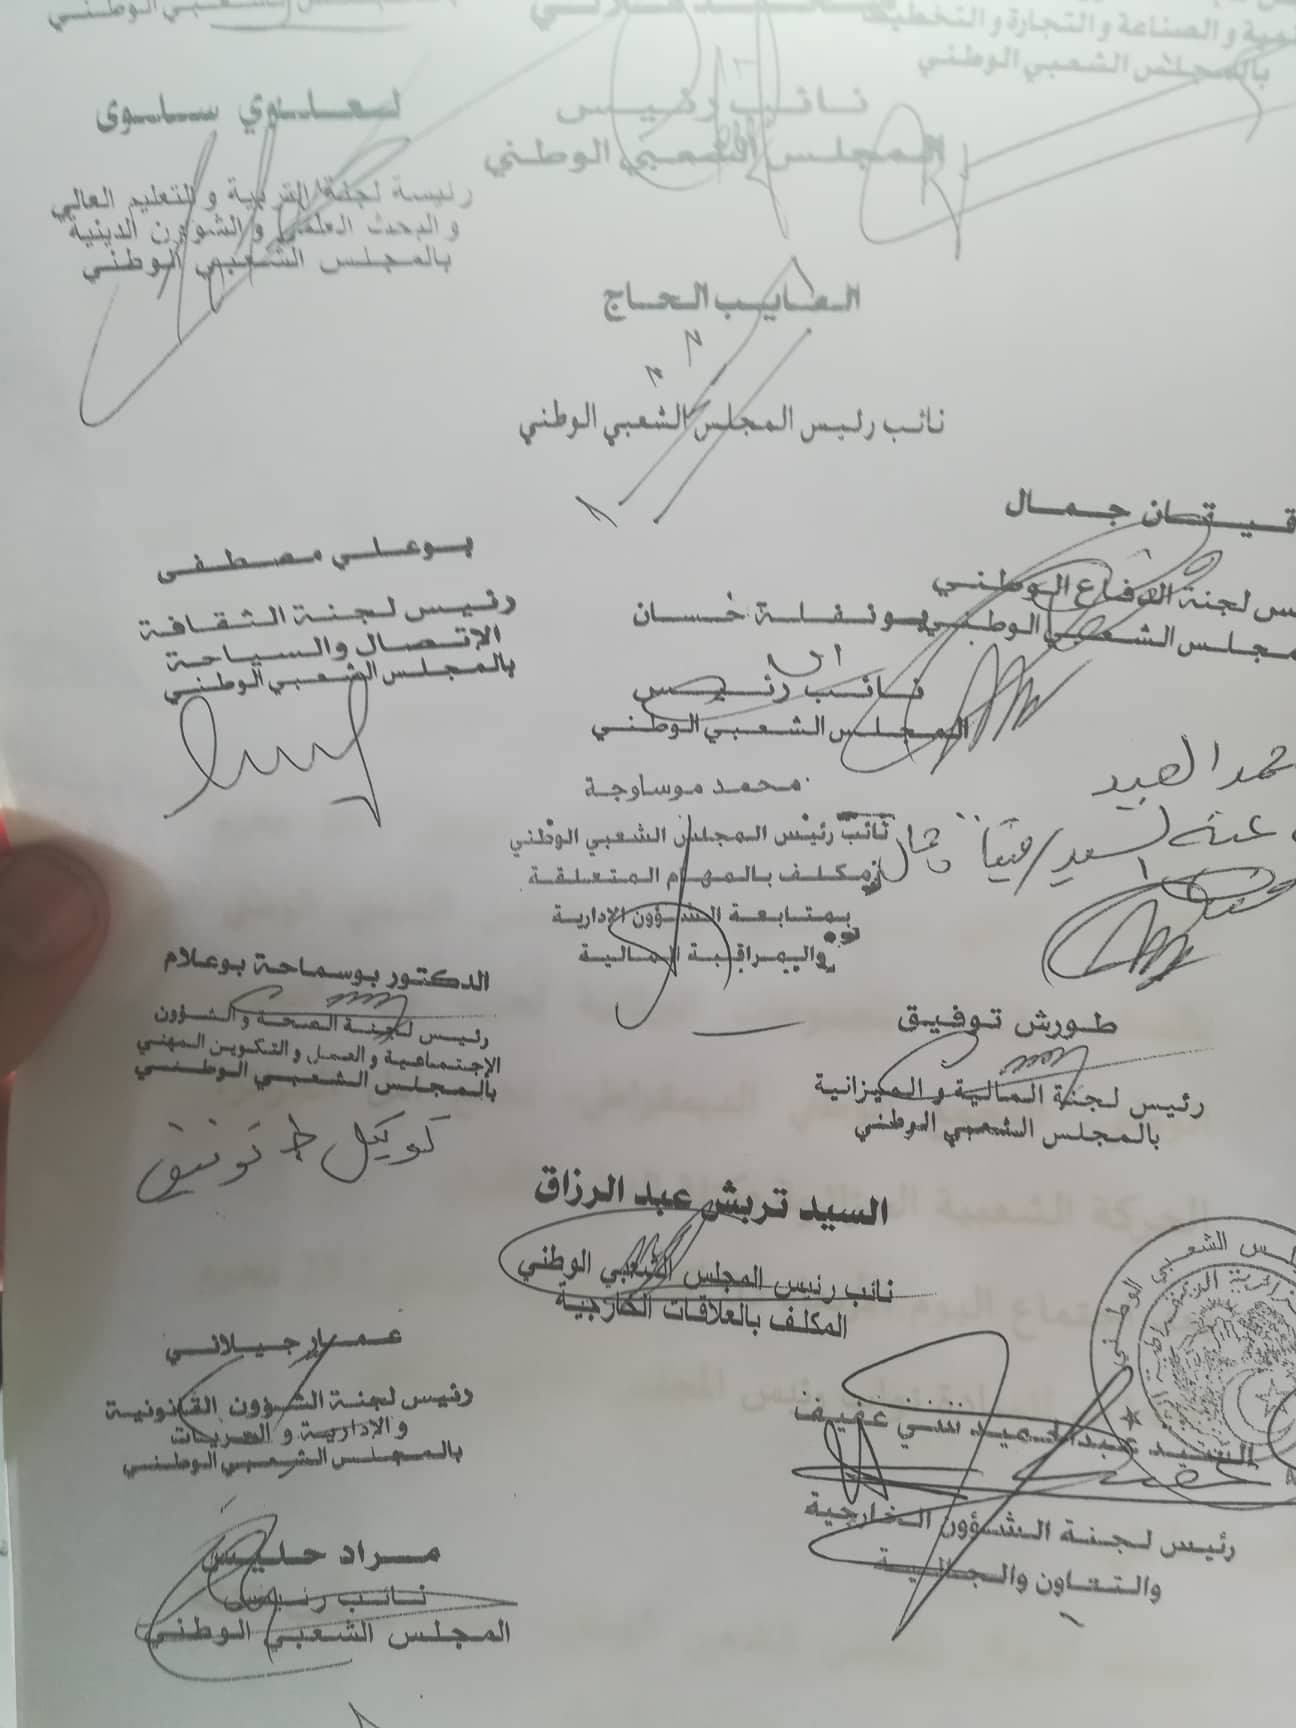 المجلس الشعبي الوطني
والصناعة والتجارة والتخطيط
بالمجلس الشعبي الوطني
نائب رئيس
المجلس الشعبي الوطني
لعلاوي سلوى
رئيسة لجنة التربية والتعليم العالي
والبحث العلمي والشؤون الدينية
بالمجلس الشعبي الوطني
العايب الحاج
نائب رئيس المجلس الشعبي الوطني
قيتان جمال
لجنة الدفاع الوطني
الشعبي الوطني
بوعلي مصطفى
رئيس لجنة الثقافة
الإتصال والسياحة
بالمجلس الشعبي الوطني
بونفلة حسان
نائب رئيس
المجلس الشعبي الوطني
محمد العيد
محمد موساوجة
نائب رئيس المجلس الشعبي الوطني
مكلف بالمهام المتعلقة
بمتابعة الشؤون الإدارية
والمراقبة المالية
الدكتور بوسماحة بوعلام
رئيس لجنة الصحة والشؤون
الإجتماعية والعمل والتكوين المهني
بالمجلس الشعبي الوطني
طورش توفيق
رئيس لجنة المالية و الميزانية
بالمجلس الشعبي الوطني
توفيق
السيد تربش عبد الرزاق
نائب رئيس المجلس الشعبي الوطني
المكلف بالعلاقات الخارجية
الشعبي الوطني
عمار جيلاني
رئيس لجنة الشؤون القانونية
والإدارية و الحريات
بالمجلس الشعبي الوطني
السيد عبدالحميد سي عفيف
رئيس لجنة الشؤون الخارجية
والتعاون والجالية
مراد حليس
نائب رئيس
المجلس الشعبي الوطني